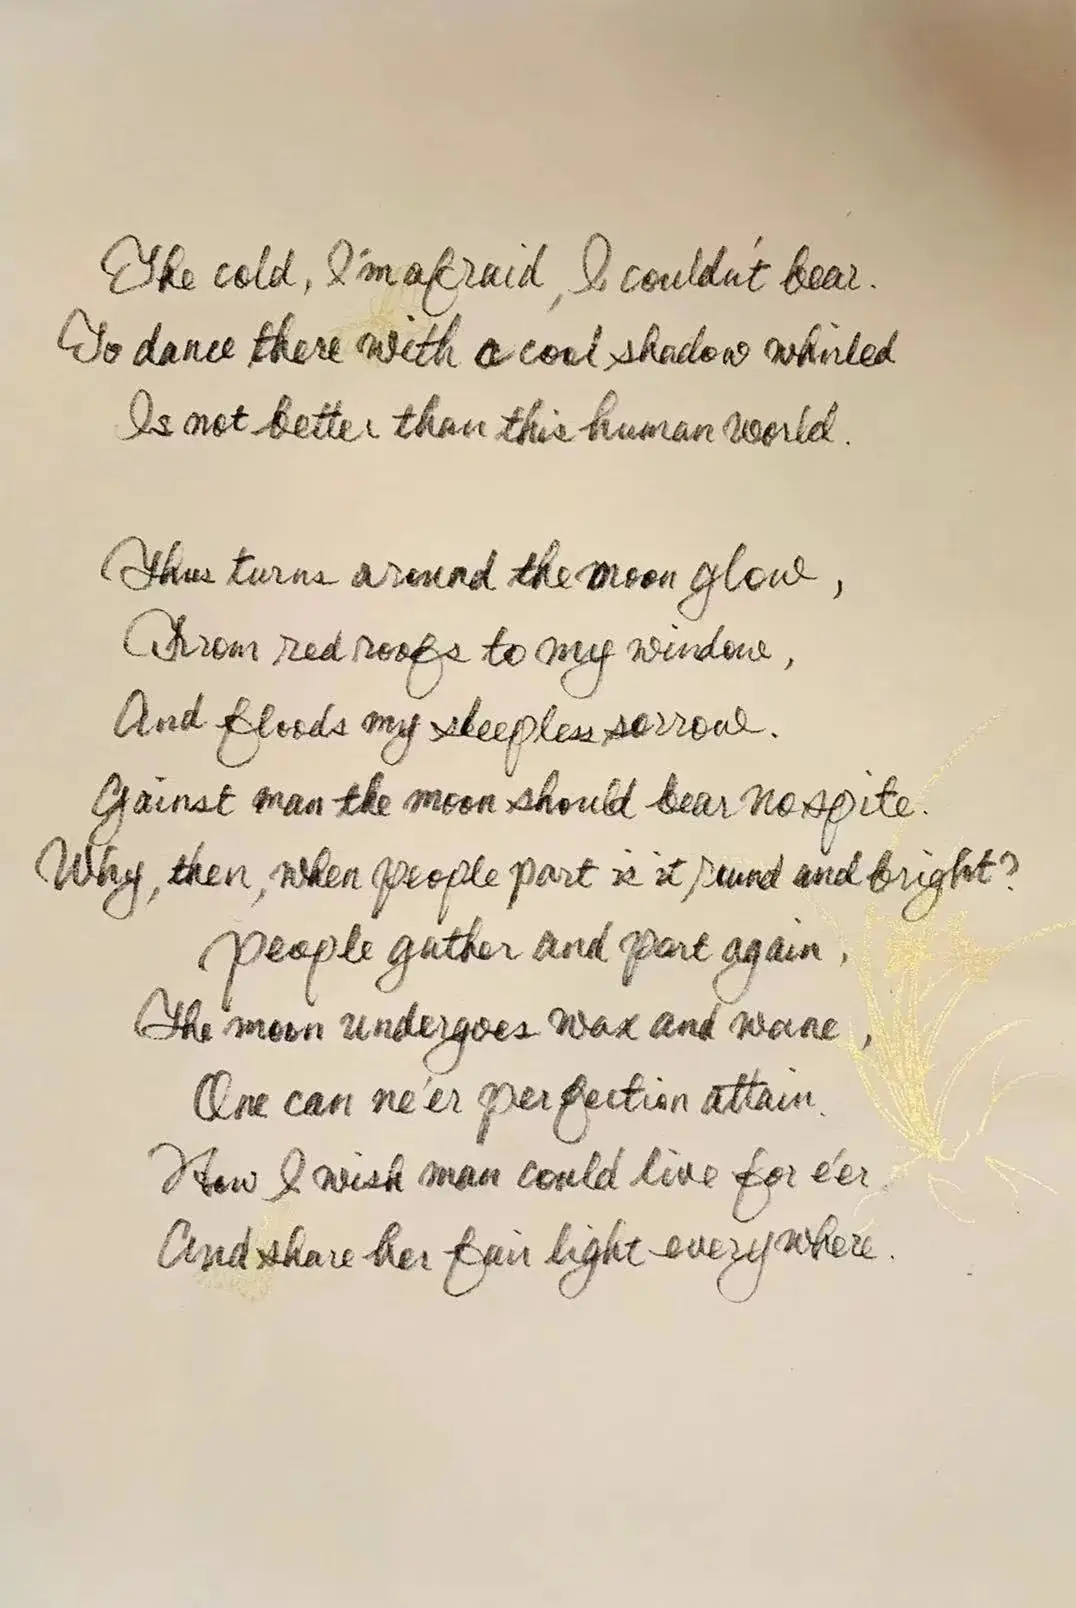 The cold, I'm afraid, I couldn't bear.
To dance there with a cool shadow whirled
Is not better than this human world.
Thus turns around the moon glow,
From red roofs to my window,
And floods my sleepless sorrow.
Gainst man the moon should bear no spite.
Why, then, when people part is it round and bright?
People gather and part again,
The moon undergoes wax and wane,
One can ne'er perfection attain.
How I wish man could live for e'er
And share her fair light everywhere.